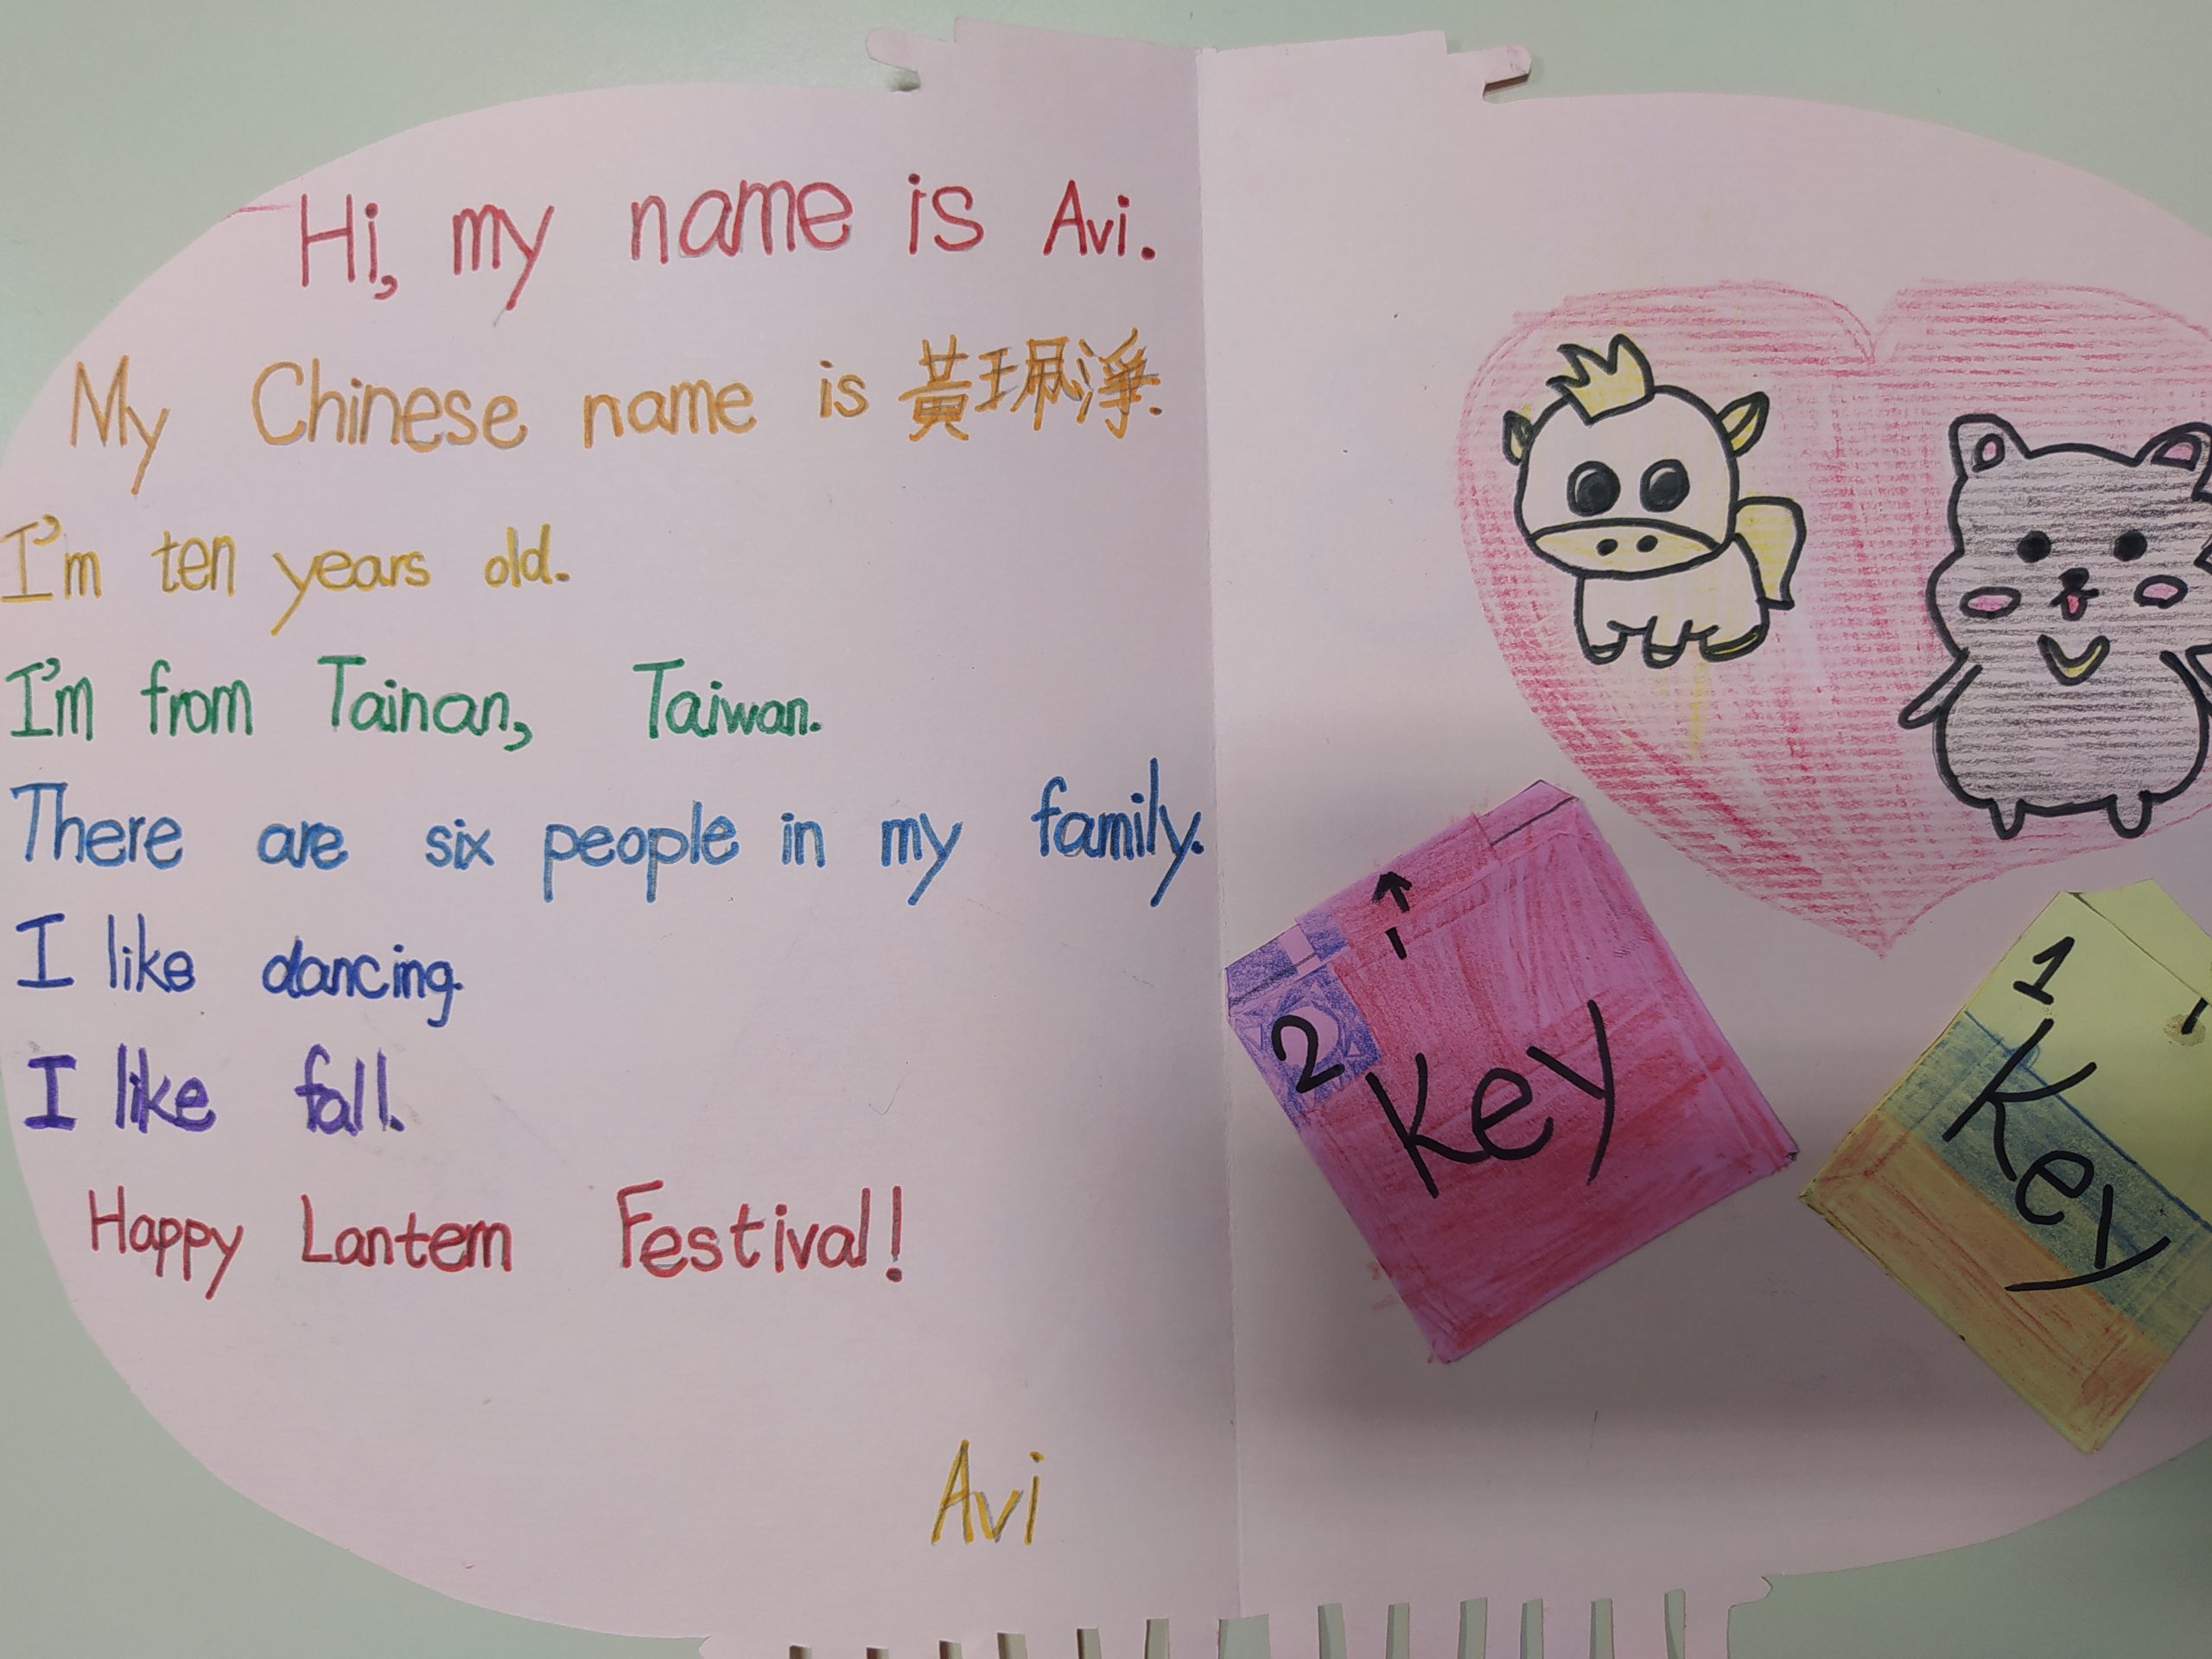 Hi, my name is Avi.
My Chinese name is 黃珮淨.
I'm ten years old.
I'm from Tainan, Taiwan.
There are six people in my family.
I like dancing.
I like fall.
Happy Lantern Festival!
Avi
2
Key
1
Key